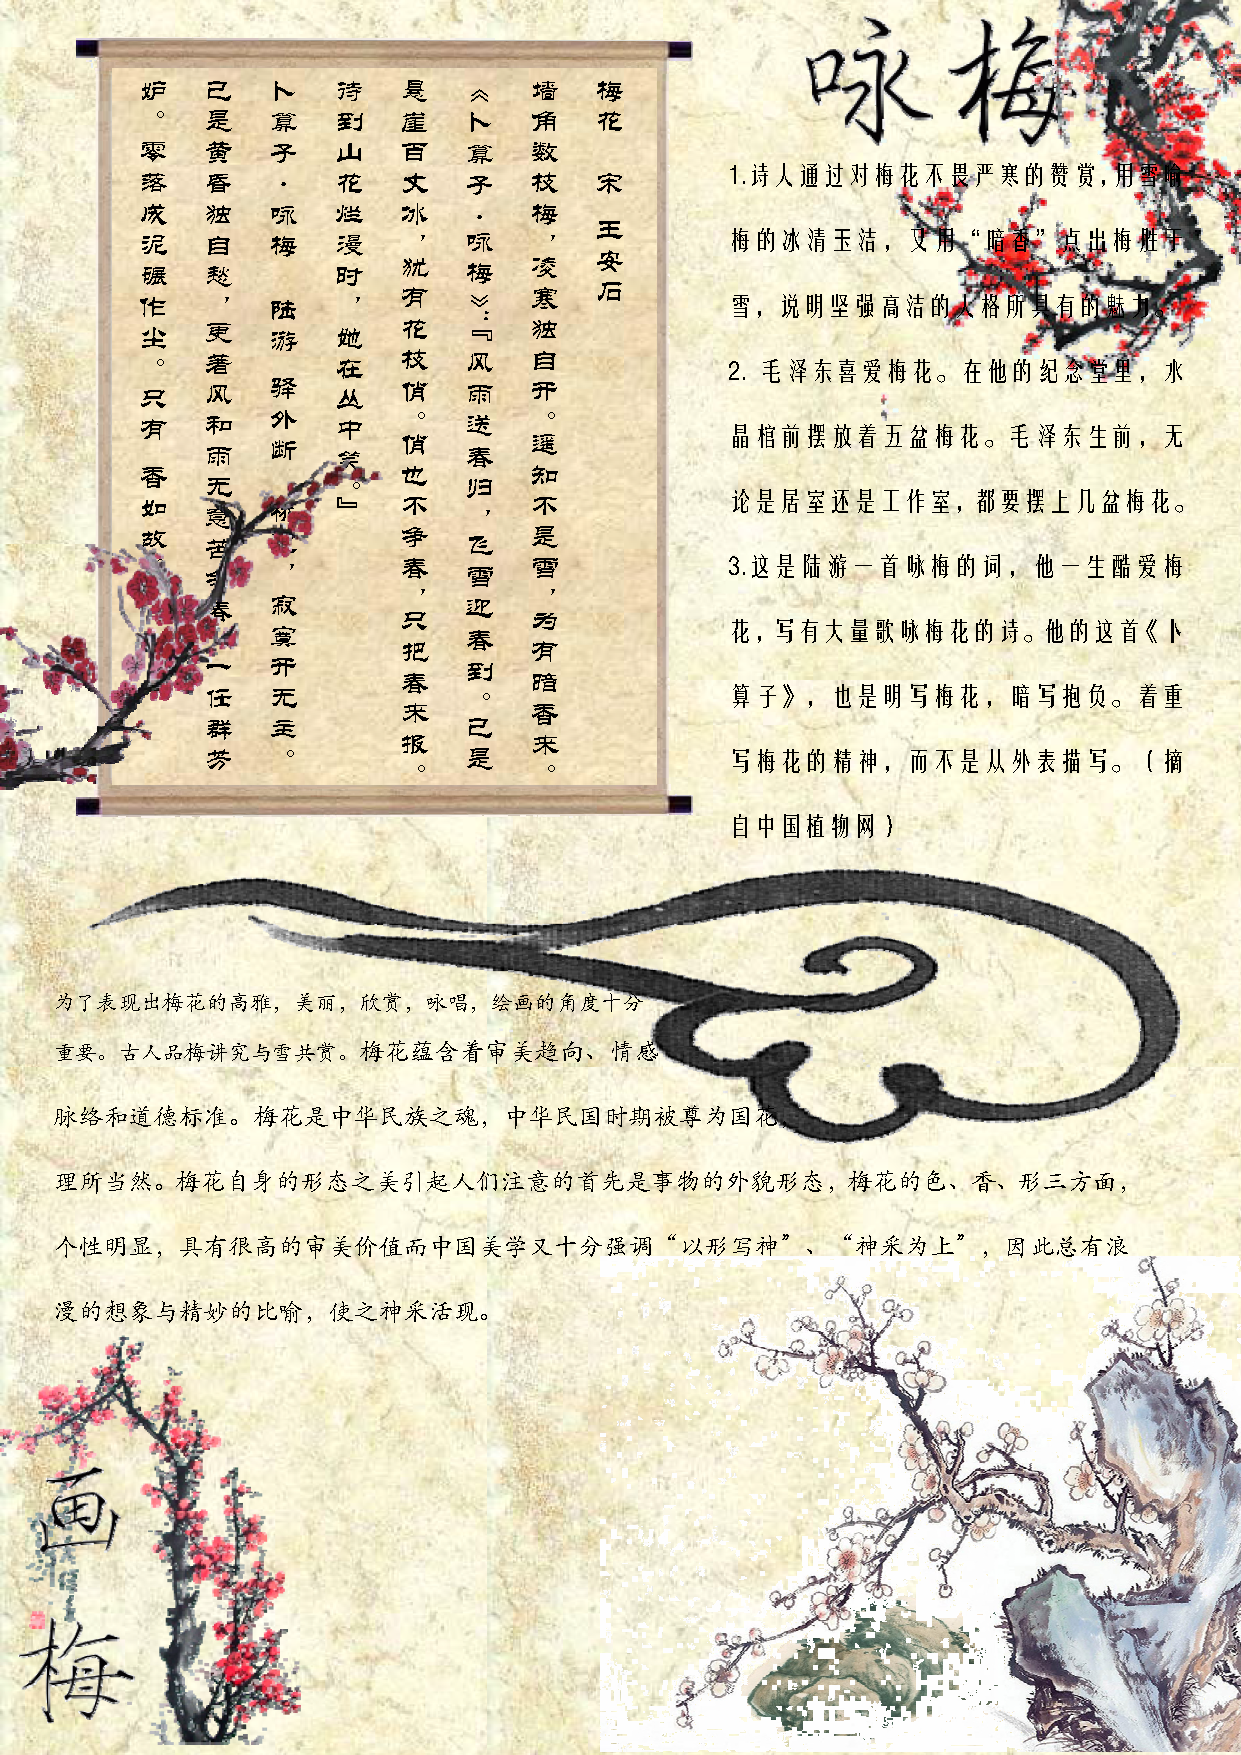 咏梅
梅花 宋 王安石
墙角数枝梅，凌寒独自开。遥知不是雪，为有暗香来。
《卜算子·咏梅》：『风雨送春归，飞雪迎春到。已是
悬崖百丈冰，犹有花枝俏。俏也不争春，只把春来报。
待到山花烂漫时，她在丛中笑。』
卜算子·咏梅 陆游 驿外断 ，寂寞开无主。
已是黄昏独自愁，更著风和雨无意苦 春 一任群芳
妒。零落成泥碾作尘。只有 香如故
1.诗人通过对梅花不畏严寒的赞赏,用雪喻
梅的冰清玉洁，又用“暗香”点出梅胜于
雪，说明坚强高洁的人格所具有的魅力。
2. 毛泽东喜爱梅花。在他的纪念堂里，水
晶棺前摆放着五盆梅花。毛泽东生前，无
论是居室还是工作室，都要摆上几盆梅花。
3.这是陆游一首咏梅的词，他一生酷爱梅
花，写有大量歌咏梅花的诗。他的这首《卜
算子》，也是明写梅花，暗写抱负。着重
写梅花的精神，而不是从外表描写。（摘
自中国植物网）
为了表现出梅花的高雅，美丽，欣赏，咏唱，绘画的角度十分
重要。古人品梅讲究与雪共赏。梅花蕴含着审美趋向、情感
脉络和道德标准。梅花是中华民族之魂，中华民国时期被尊为国花，
理所当然。梅花自身的形态之美引起人们注意的首先是事物的外貌形态，梅花的色、香、形三方面，
个性明显，具有很高的审美价值而中国美学又十分强调“以形写神”、“神采为上”，因此总有浪
漫的想象与精妙的比喻，使之神采活现。
画梅